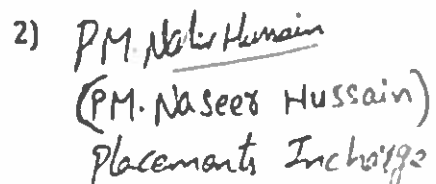 2) PM. Naseer Hussain
(PM. Naseer Hussain)
Placements Incharge